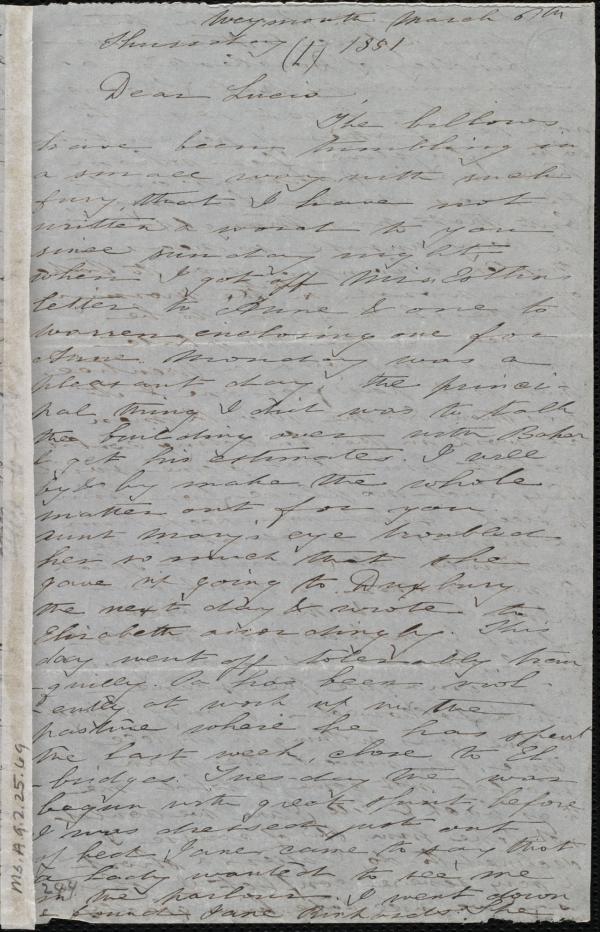 Weymouth March 6th
Thursday (1.) 1851
Dear Lucia,
The billows
have been tumbling in
a small way with such
fury, that I have not
written a word to you
since sunday night,
when I got off Miss
letter to Anne & one to
Warren, enclosing one for
Anne. Monday was a
pleasant day, the princi-
pal thing I did was to talk
the building over with Baker
& get his estimates. I will
by & by make the whole
matter out for you
aunt Mary's eye troubled
her so much that she
gave up going to Duxbury
the next day & wrote to
Elizabeth accordingly. This
day went off tolerably tran
-quilly. Pa has been viol-
-ently at work up in the
pasture where he has spent
the last week, close to El
-bridges. Tues-day the was
begun with great spirit, before
I was dressed, just out
of bed, Jane came to say that
a Lady wanted to see me
in the parlour. I went down
& found Jane Richards. She
Ms.A.9.2.25.49
244